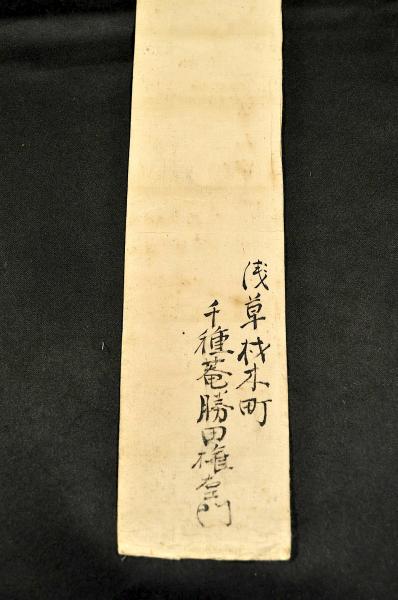 浅草材木町
千種菴勝田権左衛門